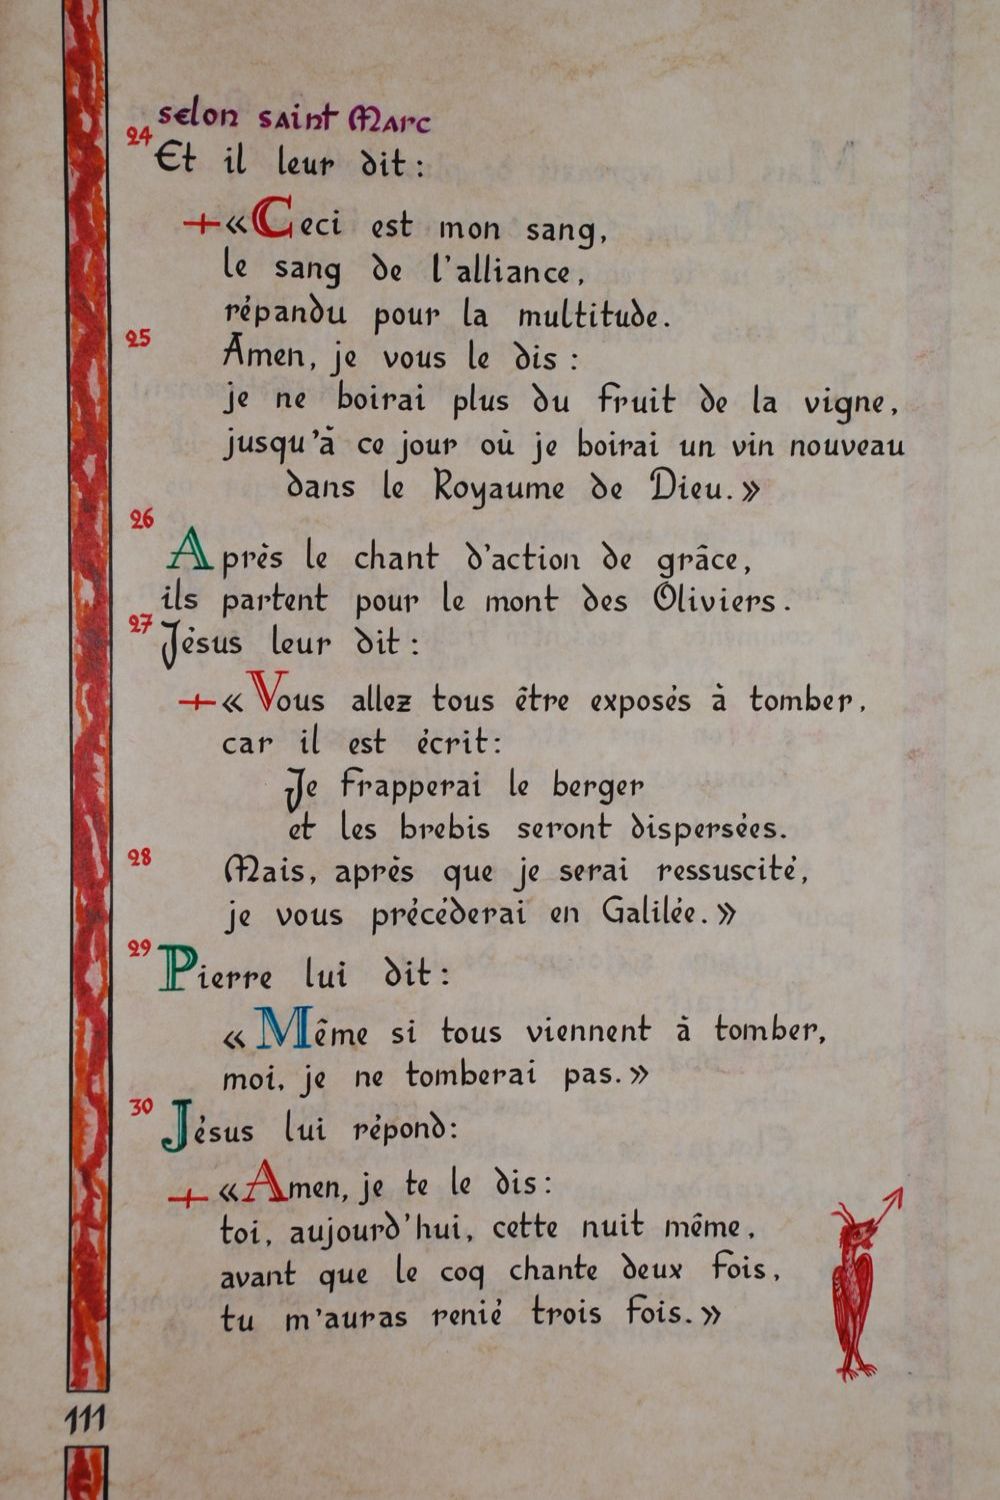 selon saint Marc
24
Et il leur dit :
+ « Ceci est mon sang,
le sang de l'alliance,
répandu pour la multitude.
25 Amen, je vous le dis :
je ne boirai plus du fruit de la vigne,
jusqu'à ce jour où je boirai un vin nouveau
dans le Royaume de Dieu. »
26
Après le chant d'action de grâce,
ils partent pour le mont des Oliviers.
27 Jésus leur dit :
+ « Vous allez tous être exposés à tomber,
car il est écrit :
Je frapperai le berger
et les brebis seront dispersées.
28 Mais, après que je serai ressuscité,
je vous précéderai en Galilée. »
29 Pierre lui dit :
« Même si tous viennent à tomber,
moi, je ne tomberai pas. »
30 Jésus lui répond :
+ « Amen, je te le dis :
toi, aujourd'hui, cette nuit même,
avant que le coq chante deux fois,
tu m'auras renié trois fois. »
111